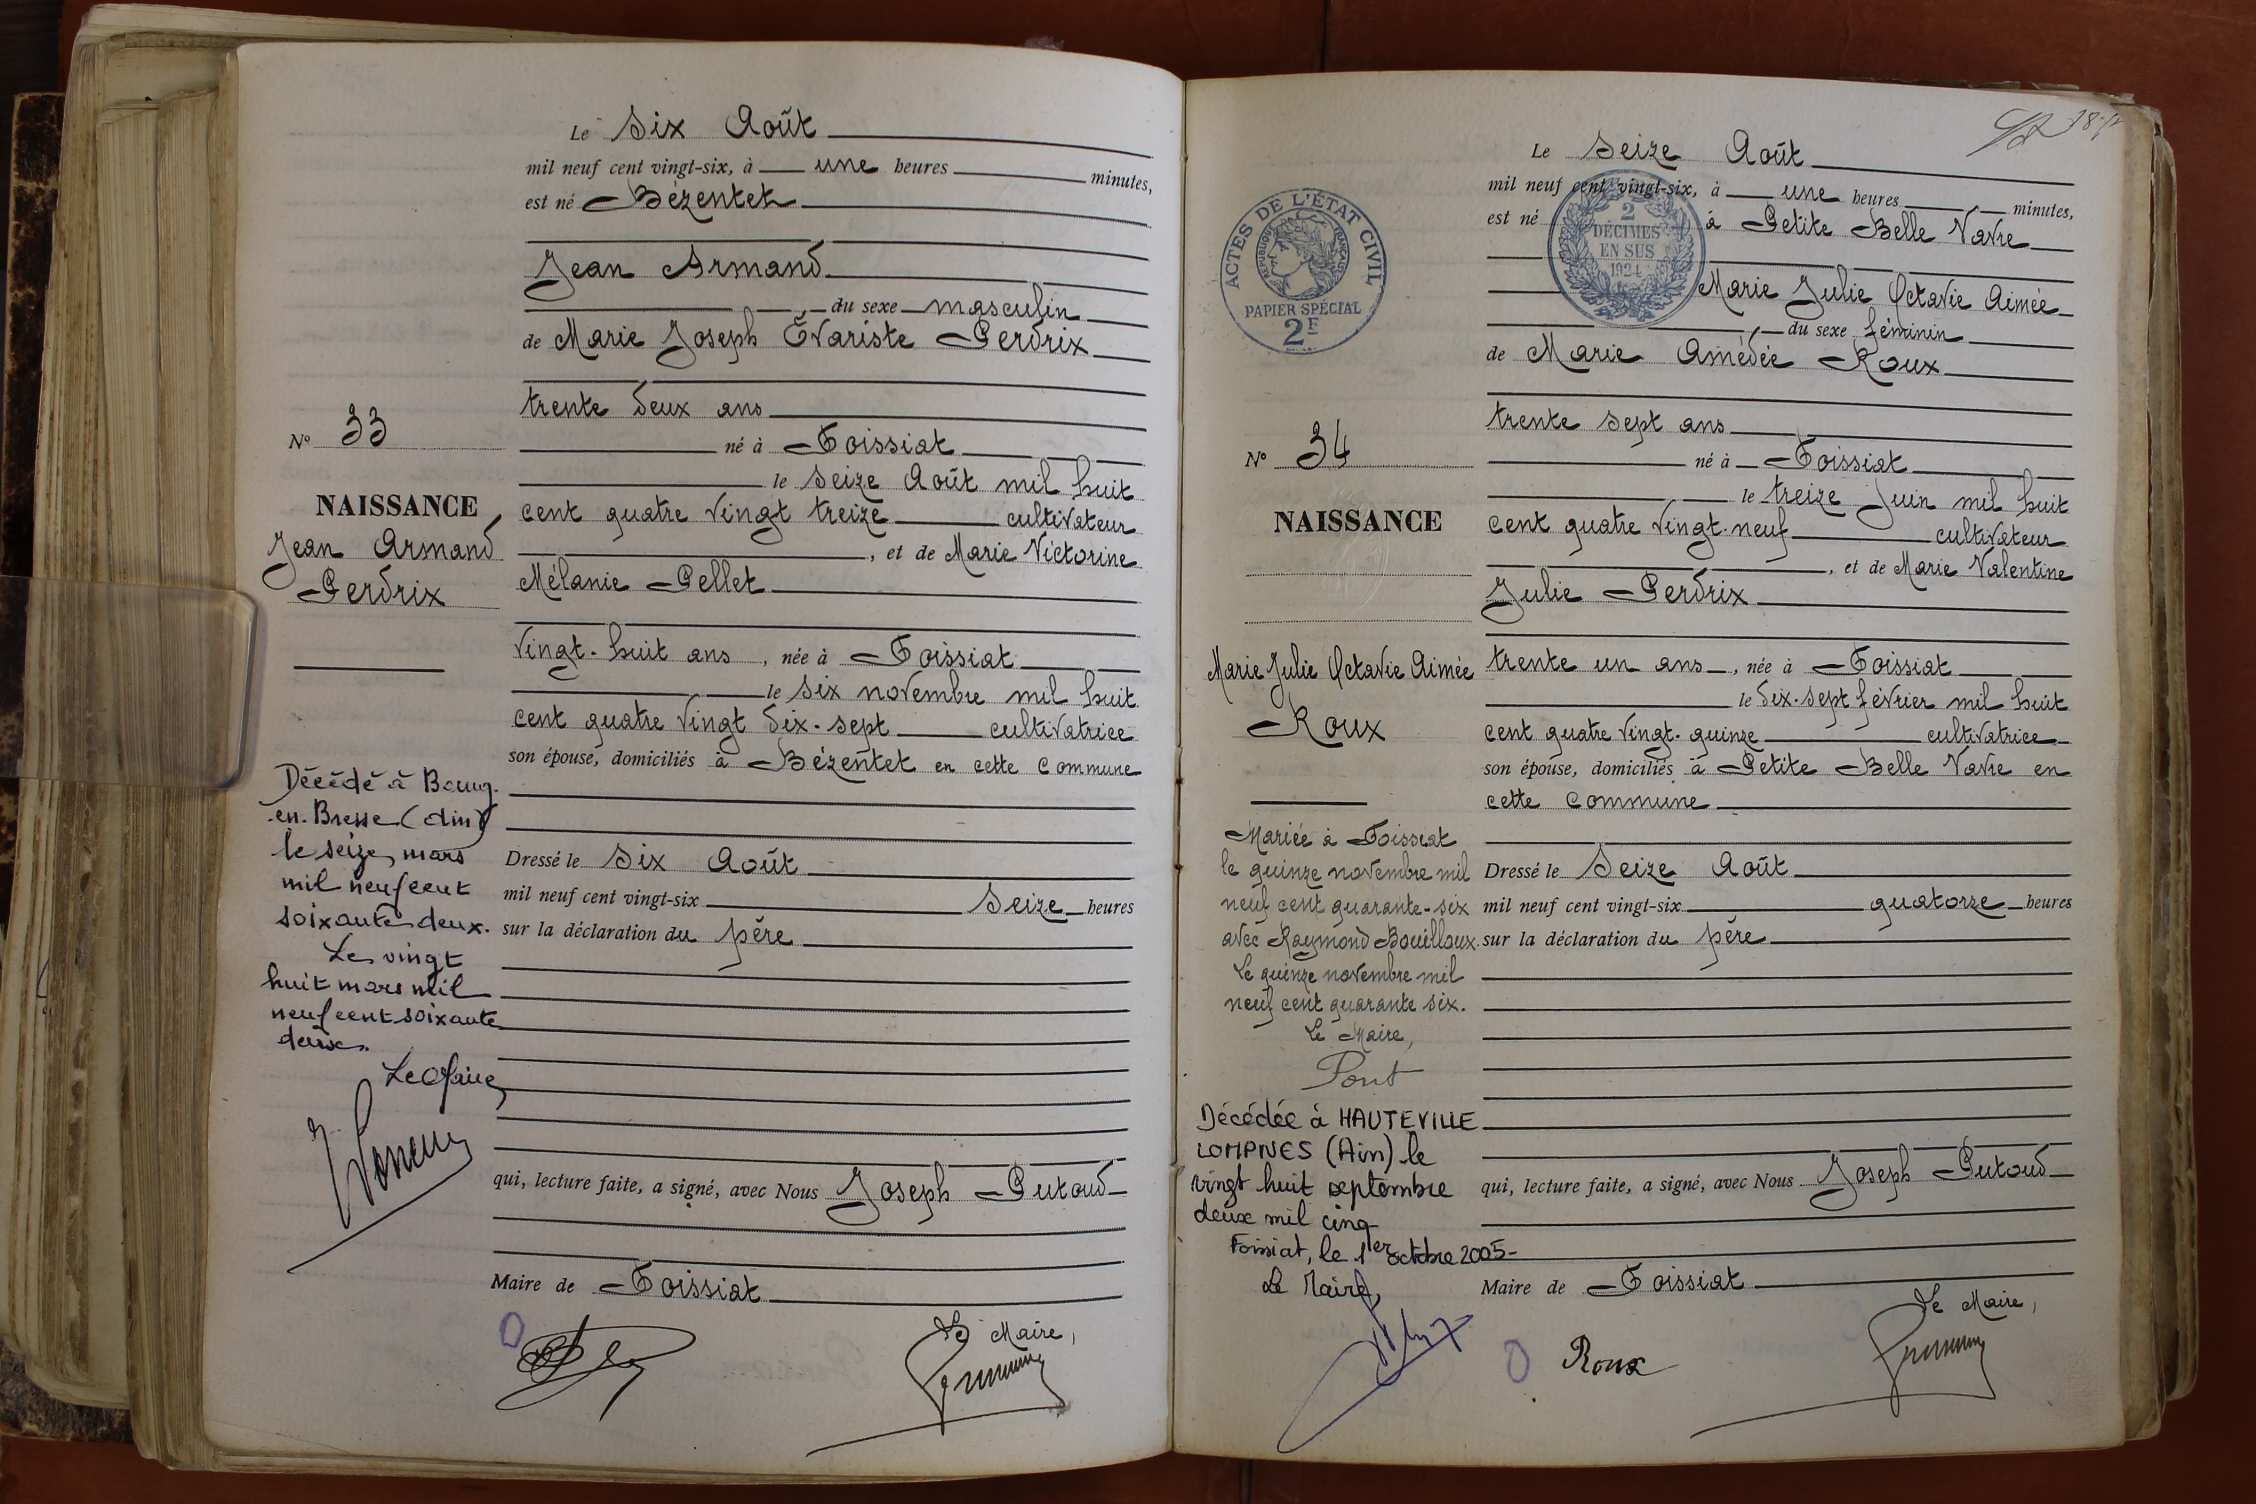 Le Six Août
mil neuf cent vingt-six, à une heures minutes,
est né Bézentet
Jean Armand
du sexe masculin
de Marie Joseph Évariste Perdrix
trente deux ans
né à Foissiat
le seize Août mil huit
cent quatre vingt treize cultivateur
, et de Marie Victorine
Mélanie Pellet
vingt-huit ans, née à Foissiat
le six novembre mil huit
cent quatre vingt dix-sept cultivatrice
son épouse, domiciliés à Bézentet en cette commune
Dressé le Six Août
mil neuf cent vingt-six Seize heures
sur la déclaration du père
qui, lecture faite, a signé, avec Nous Joseph Putoud
Maire de Foissiat
Le Maire,
N° 33
NAISSANCE
Jean Armand
Perdrix
Décédé à Bourg-
-en-Bresse (Ain)
le seize mars
mil neuf cent
soixante deux.
Le vingt
huit mars mil
neuf cent soixante
deux.
Le Maire
Le Seize Août
mil neuf cent vingt-six, à une heures minutes,
est né à Petite Belle Vavre
Marie Julie Octavie Aimée
du sexe féminin
de Marie Amédée Roux
trente sept ans
né à Foissiat
le treize Juin mil huit
cent quatre vingt-neuf cultivateur
, et de Marie Valentine
Julie Perdrix
trente un ans, née à Foissiat
le dix-sept février mil huit
cent quatre vingt-quinze cultivatrice
son épouse, domiciliés à Petite Belle Vavre en
cette commune
Dressé le Seize Août
mil neuf cent vingt-six quatorze heures
sur la déclaration du père
qui, lecture faite, a signé, avec Nous Joseph Putoud
Maire de Foissiat
Le Maire,
Roux
ACTES DE L'ÉTAT CIVIL
RÉPUBLIQUE FRANÇAISE
PAPIER SPÉCIAL
2F
2
DÉCIMES
EN SUS
1924
N° 34
NAISSANCE
Marie Julie Octavie Aimée
Roux
Mariée à Foissiat
le quinze novembre mil
neuf cent quarante-six
avec Raymond Bouilloux.
Le quinze novembre mil
neuf cent quarante six.
Le Maire,
Pont
Décédée à HAUTEVILLE
LOMPNES (Ain) le
vingt huit septembre
deux mil cinq
Foissiat, le 1er octobre 2005-
Le Maire,